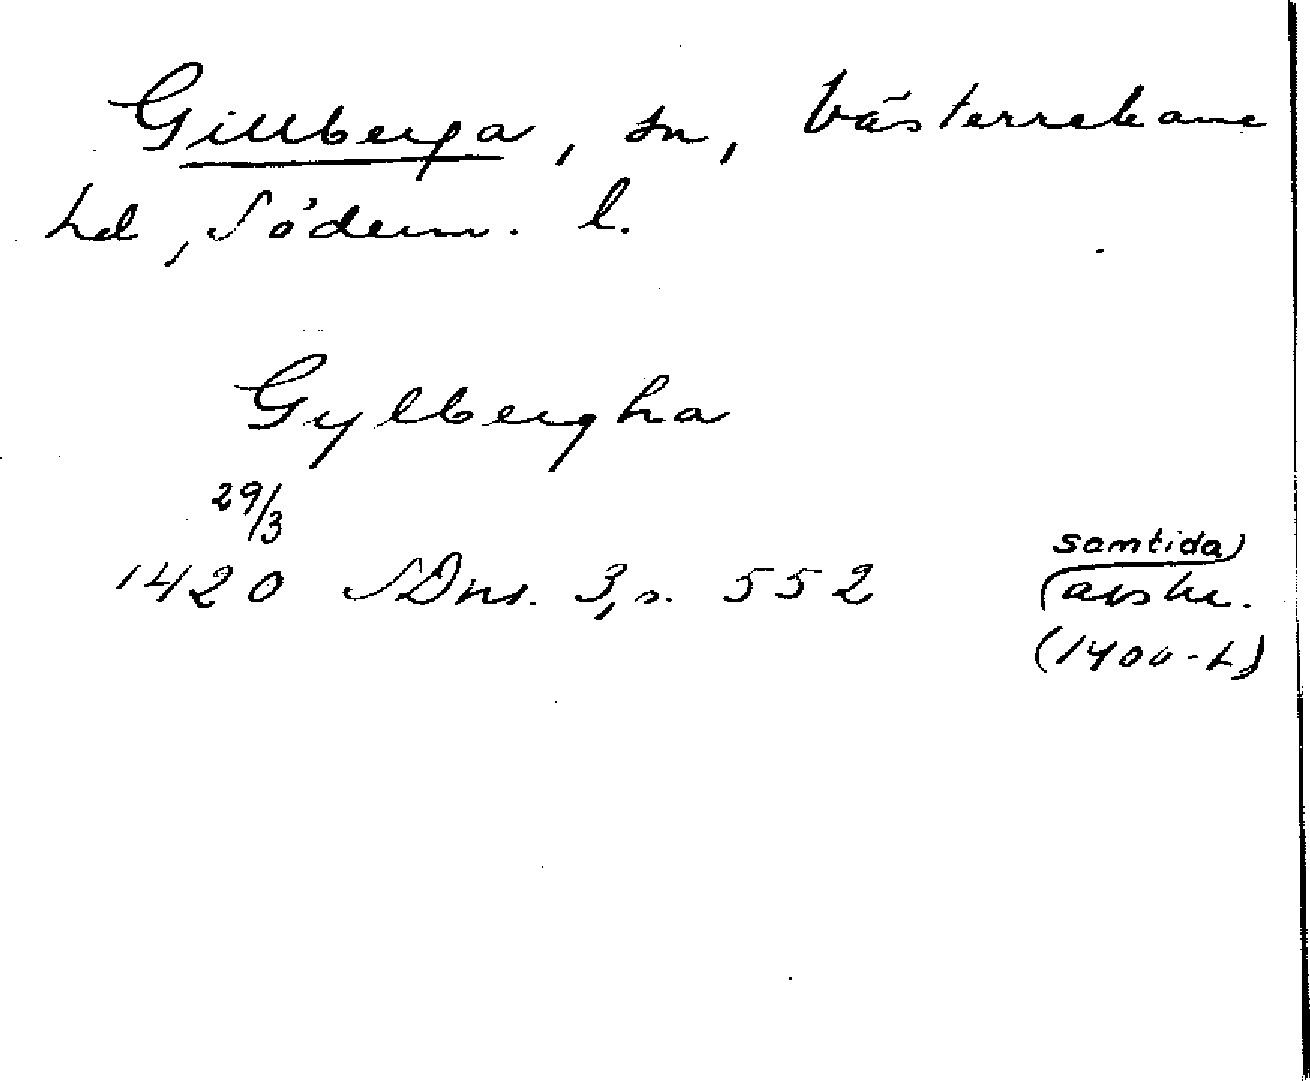 Gillberga, sn, Västerrekarne
hd, Söderm. l.
Gylbergha
29/3
1420 SDns. 3, s. 552
samtida)
(avskr.
(1400-t)